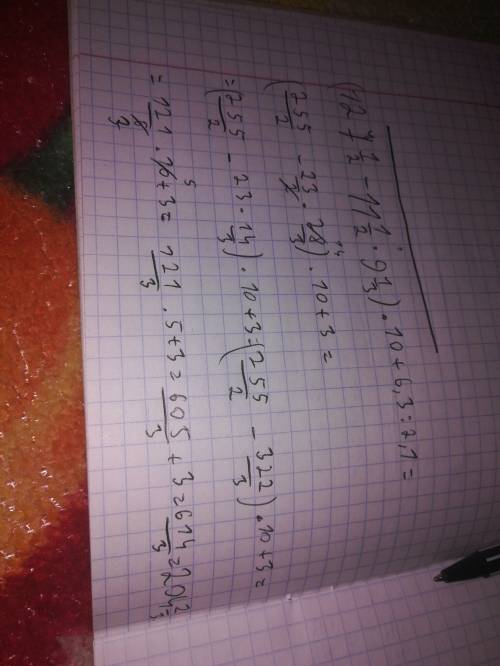 (127 1/2 - 11 1/2 · 9 1/3) · 10 + 6,3 : 2,1 =
(255/2 - 23/2 · 28/3) · 10 + 3 =
= (255/2 - 23 · 14/3) · 10 + 3 = (255/2 - 322/3) · 10 + 3 =
= 121/6 · 10 + 3 = 121/3 · 5 + 3 = 605/3 + 3 = 614/3 = 204 2/3